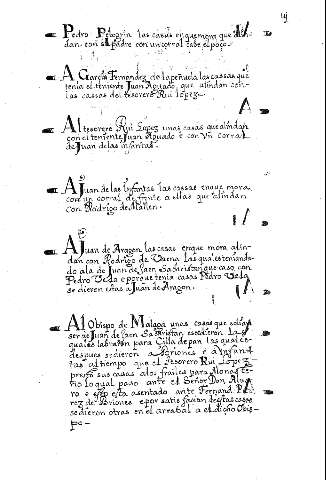 Pedro Peregrin las casas en que mora que alin
dan con su padre con un corral cabe el poço.
A Garçia Fernandez de la peñuela las cassas que
tenia el teniente Juan Aguado que alindan con
las cassas del tesorero Rui Lopez.
Al tesorero Rui Lopez unas casas que alindan
con el teniente Juan Aguado e con Un corral
de Juan de las infantas.
A Juan de las Infantas las cassas en que mora
con un corral de frente a ellas que alindan
con Rodrigo de
A Juan de Aragon las casas en que mora alin
dan con Rodrigo de Baena las quales tenian da
do a la de Juan de Jaen Sacristan que caso con
Pedro Vela e porque tenia casas Pedro Vela
se dieron estas a Juan de Aragon.
Al Obispo de Malaga unas casas que solian
ser de Juan de Jaen Sacristan e se dieron las
quales labraron para Cilla de pan las quales
despues se dieron a
al tiempo que el Tesorero Rui Lopez
sus casas a los frailes para Monaste
rio lo qual paso ante el Señor Don
e esta asentado ante Fernand Pe
rez de e por satisfaçion destas casas
se dieron otras en el arrabal a el dicho Obis
po